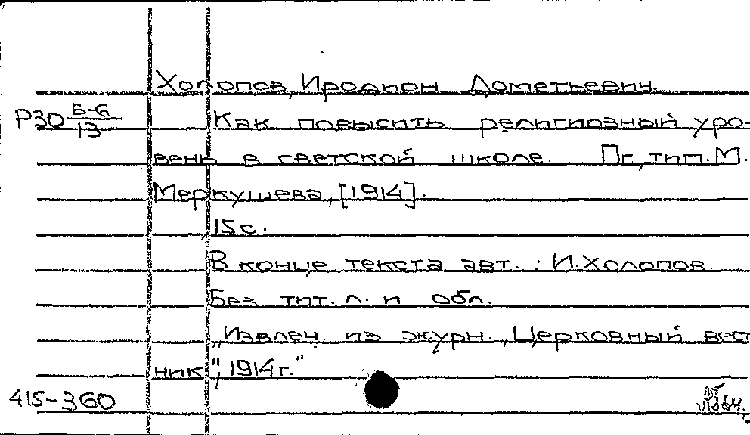 Холопов, Иродион Дометьевич.
Р30 Б-6/13 Как повысить религиозный уро-
вень в светской школе. Пг., тип. М.
Меркушева, [1914].
15 с.
В конце текста авт.: И. Холопов
Без тит. л. и обл.
„Извлеч из журн. „Церковный вест
ник", 1914 г."
415-360